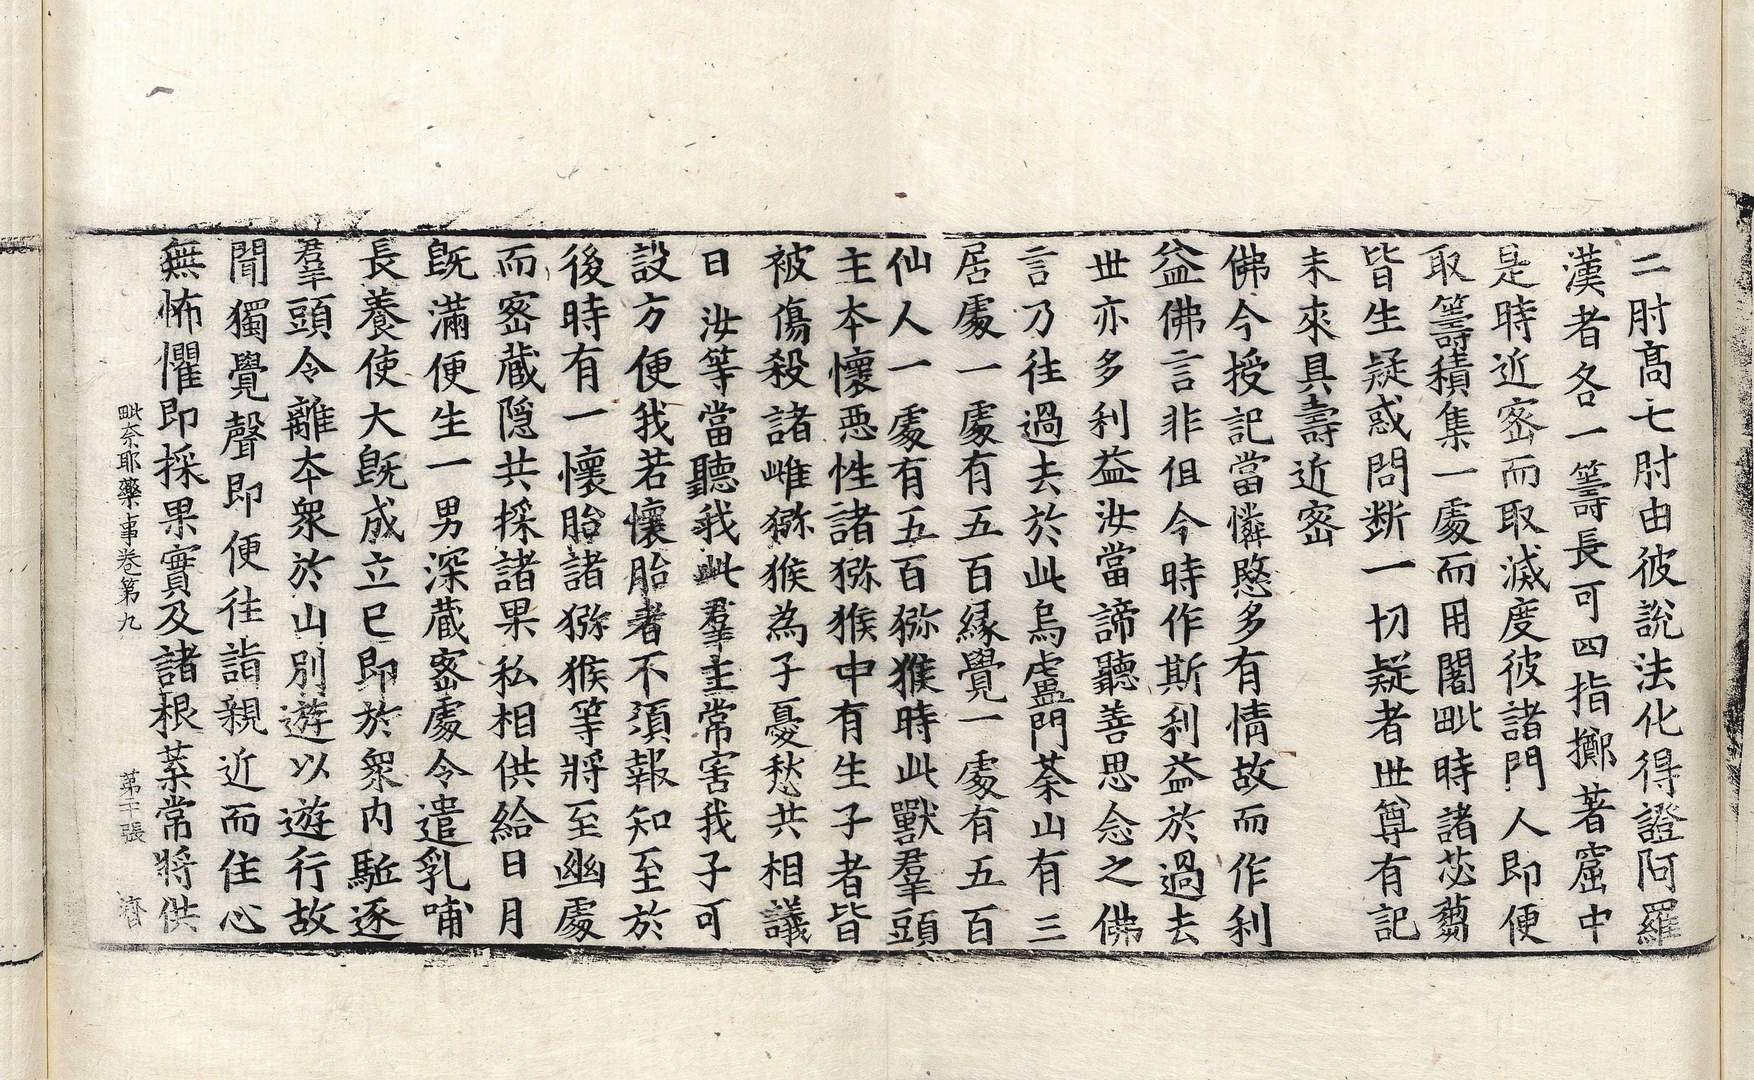 二肘高七肘由彼說法化得證阿羅
漢者各一籌長可四指擲著窟中
是時近密而取滅度彼諸門人即便
取籌積集一處而用闍毗時諸苾蒭
皆生疑惑問斷一切疑者世尊有記
未來具壽近密
佛今授記當憐愍多有情故而作利
益佛言非但今時作斯利益於過去
世亦多利益汝當諦聽善思念之佛
言乃往過去於此烏盧門荼山有三
居處一處有五百緣覺一處有五百
仙人一處有五百獼猴時此獸羣頭
主本懷惡性諸獼猴中有生子者皆
被傷殺諸雌獼猴為子憂愁共相議
曰汝等當聽我此羣主常害我子可
設方便我若懷胎者不須報知至於
後時有一懷胎諸獼猴等將至幽處
而密藏隱共採諸果私相供給日月
既滿便生一男深藏密處令遣乳哺
長養使大既成立已即於衆內駈逐
羣頭令離本衆於山別遊以遊行故
聞獨覺聲即便往詣親近而住心
無怖懼即採果實及諸根藥常將供
毗奈耶藥事卷第九 第十張 濟